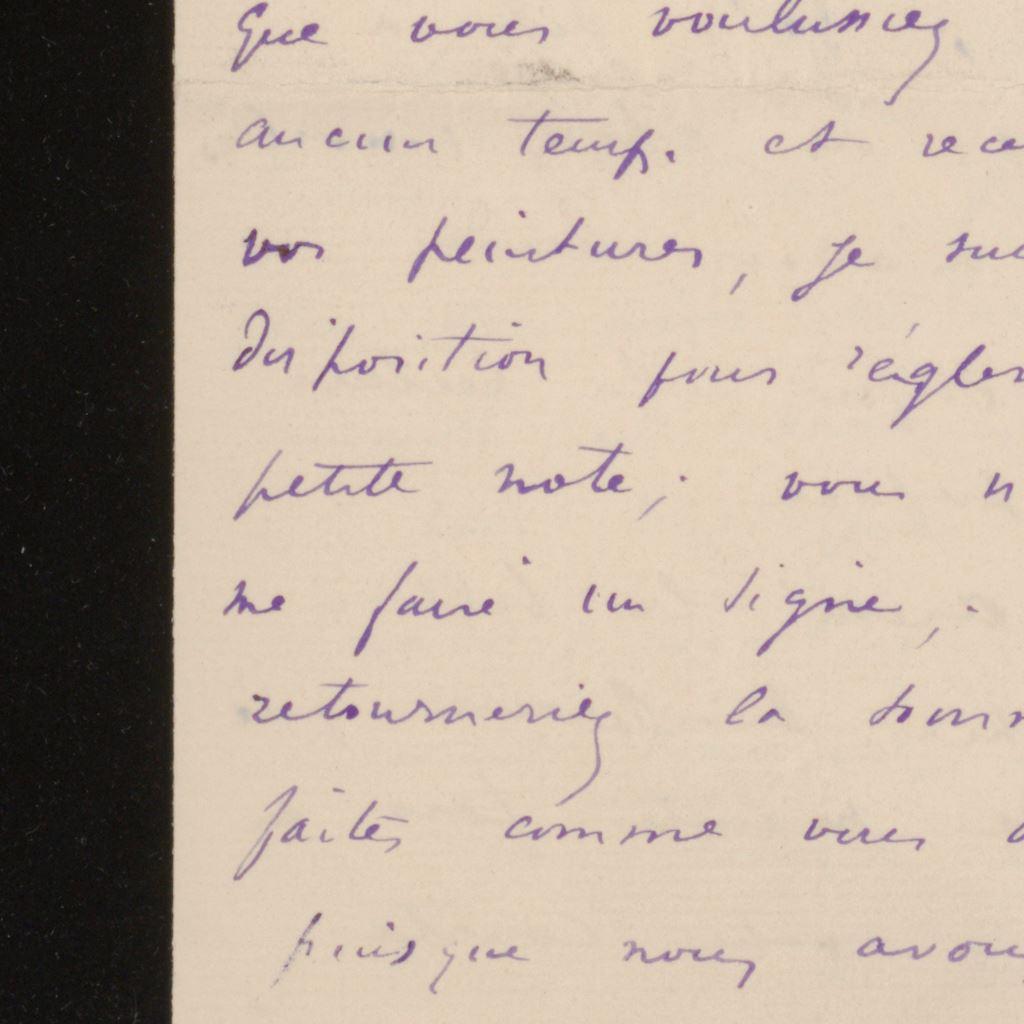 que vous voulussiez
aucun temps. et rece
vos peintures, je sui
disposition pour régler
petite note; vous n
me faire un signe,.
retourneriez la somm
faites comme vous
puisque nous avons